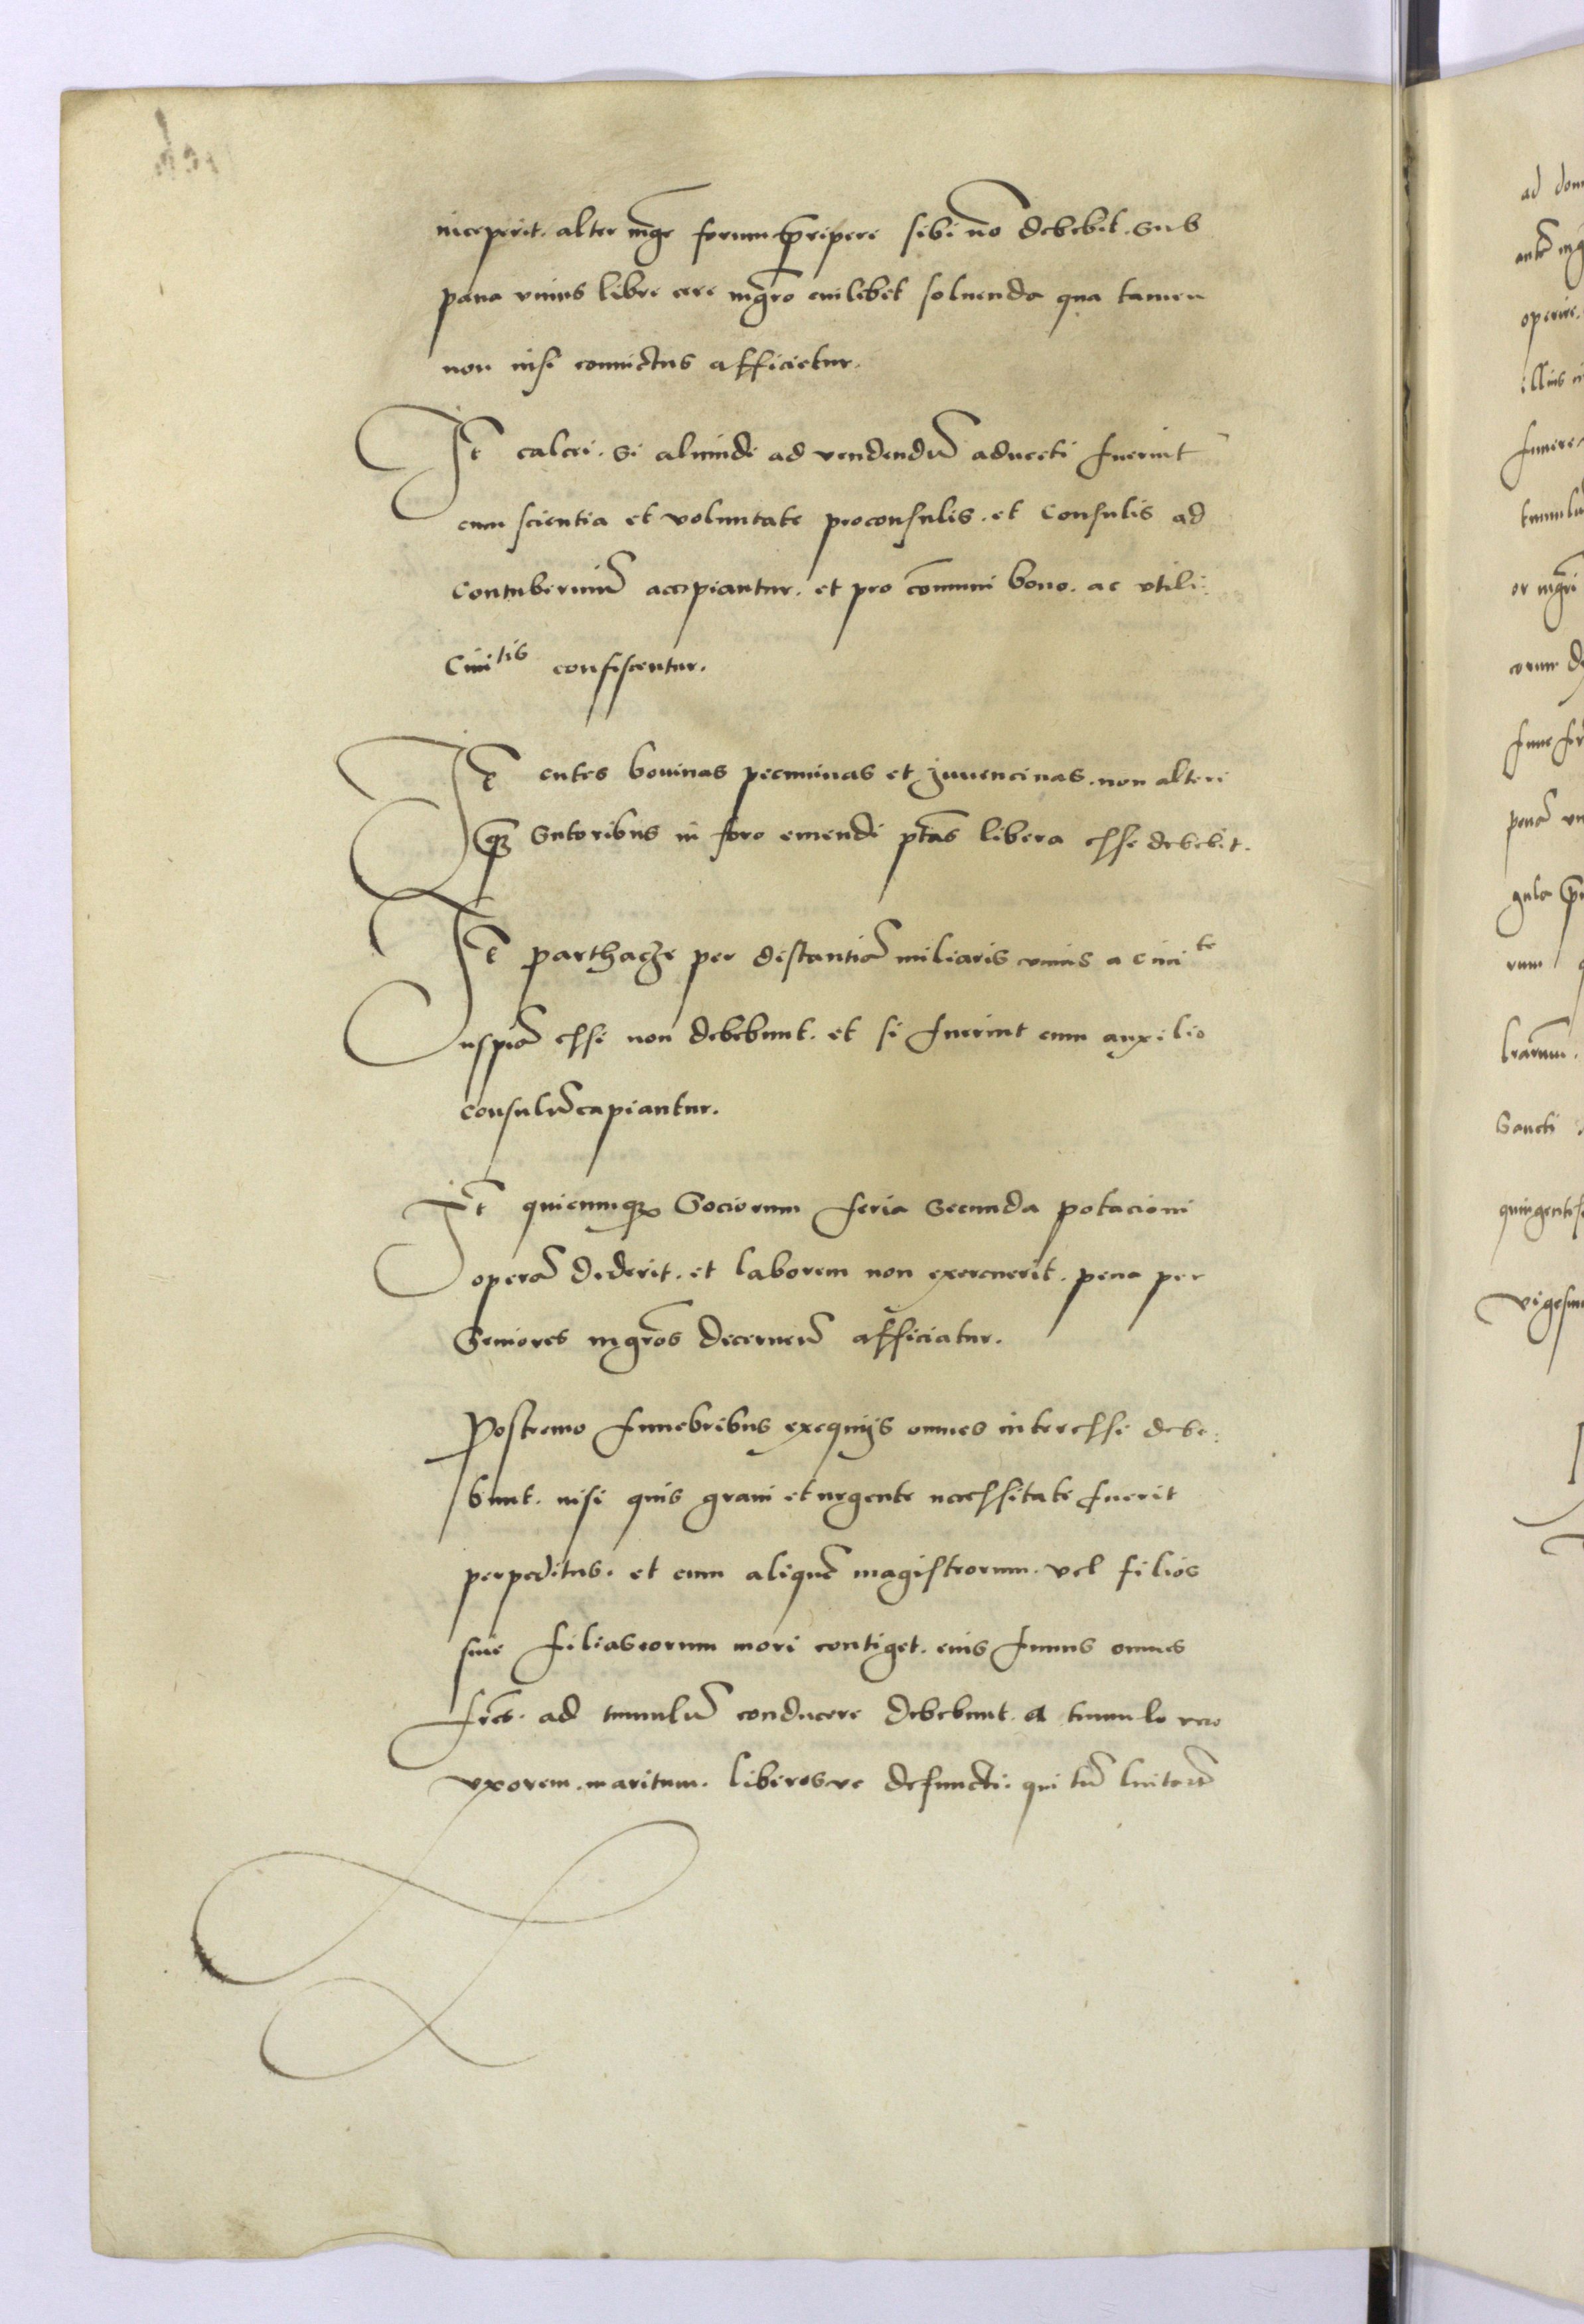 inceperit. alter mgr̄ forum p̄ripere sibi nō debebit. Sub
pana vnius libre cere mgr̄o cuilibet soluenda qua tamen
non nisi conuictus afficietur.
Itē calcei. Si aliundi ad vendendū aduecti fuerint
cum scientia et voluntate proconsulis. et Consulis ad
Contuberniū accipiantur. et pro cōmuni bono. ac vtili:
Ciuitis confiscentur.
Itē cutes bouinas pecuninas et Juuencinas. non alteri
qz Sutoribus in foro emendi ptās libera esse debebit.
Itē parthacze per distantiā miliaris vnius a ciuite
uspiā esse non debebunt. et si fuerint cum auxilio
consulū capiantur.
Itē quicumqz Sociorum feria Secunda potacioni
operā dederit. et laborem non exercuerit. pena per
Seniores mgr̄os decernenā afficiatur.
Postremo funebribus exequijs omnes interesse debe:
bunt. nisi quis graui et urgente necessitate fuerit
perpeditus. et cum aliquē magistrorum. vel filios
siue filias eorum mori contiget. eius funus omnes
fr̄es. ad tumulū conducere debebunt. A tumulo vero
vxorem. maritum. liberosve defuncti. qui tū
ad
operire.
illius
funere
corum
rum
Sancti